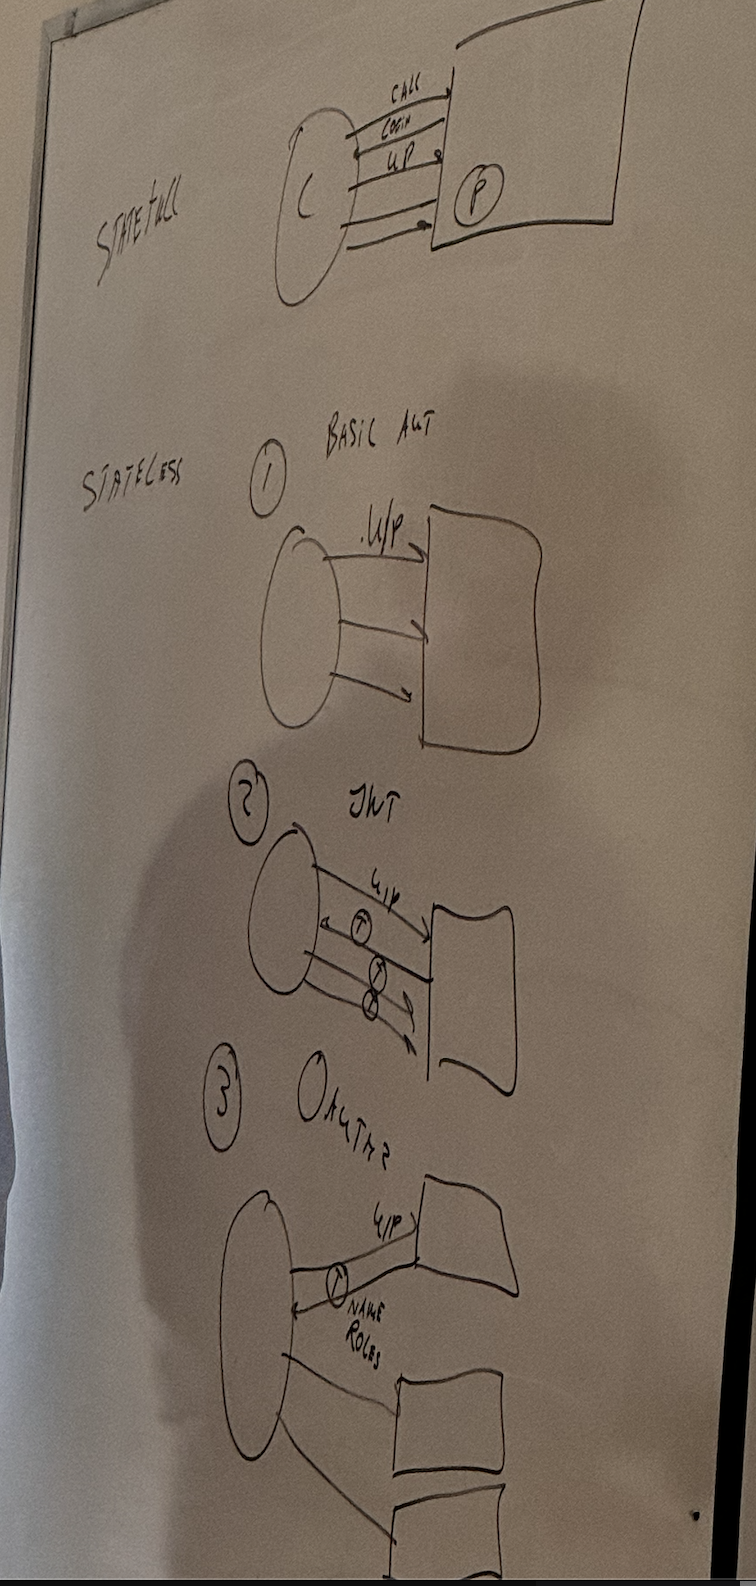 STATEFULL
CALL
LOGIN
U/P
C
P
STATELESS
1
BASIC AUT
U/P
2
JWT
U/P
T
T
T
3
OAUTH2
U/P
T
NAME
ROLES